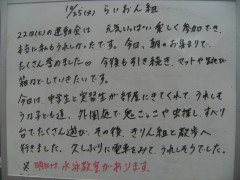 10/25(火) らいおん組
22日(土)の運動会は 元気いっぱい楽しく参加でき、
本当に私もうれしかったです。今日、朝のお集まりで、
たくさん誉めました。今後も引き続き、マットや跳び
筋力でしていきたいです。
今日は、中学生と実習生が部屋にきてくれて、うれしそ
うな子ども達。外園庭で鬼ごっこや虫探し、すべり
台でたくさん遊び、その後、きりん組と散歩へ
行きました。久しぶりに電車をみて、うれしそうでした。
※明日は、水泳教室があります。